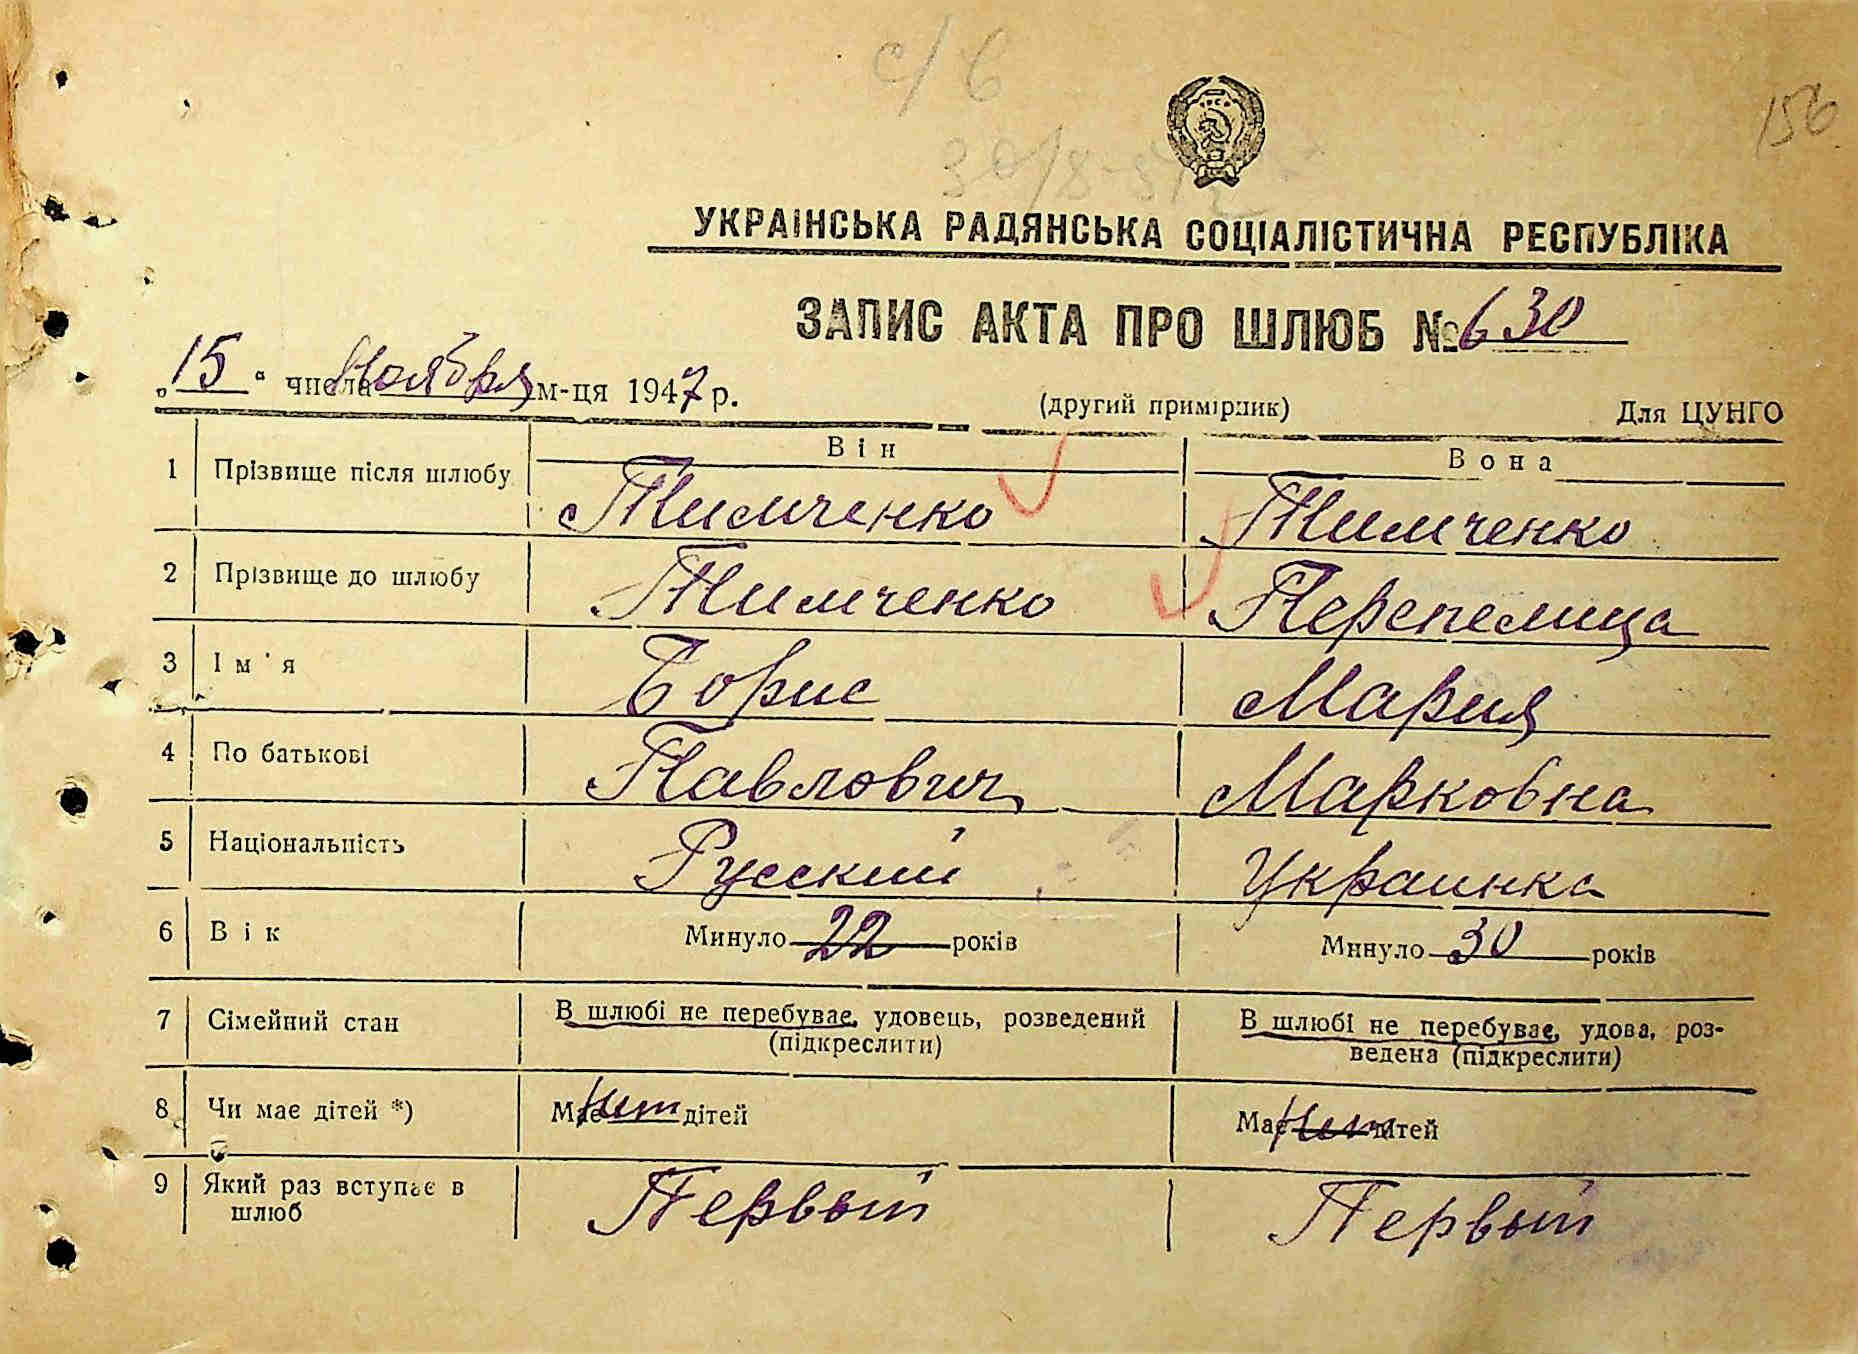 с/с
156
30/8-51
УКРАЇНСЬКА РАДЯНСЬКА СОЦІАЛІСТИЧНА РЕСПУБЛІКА
ЗАПИС АКТА ПРО ШЛЮБ № 630
„15" числа Ноября м-ця 1947 р.
(другий примірник) Для ЦУНГО
Він Вона
1 Прізвище після шлюбу Тимченко Тимченко
2 Прізвище до шлюбу Тимченко Перепелица
3 Ім'я Борис Мария
4 По батькові Павлович Марковна
5 Національність Русский Украинка
6 Вік Минуло 22 років Минуло 30 років
7 Сімейний стан В шлюбі не перебуває, удовець, розведений (підкреслити) В шлюбі не перебуває, удова, роз-
ведена (підкреслити)
8 Чи має дітей *) Має Нет дітей Має Нет дітей
9 Який раз вступає в Первый Первый
шлюб